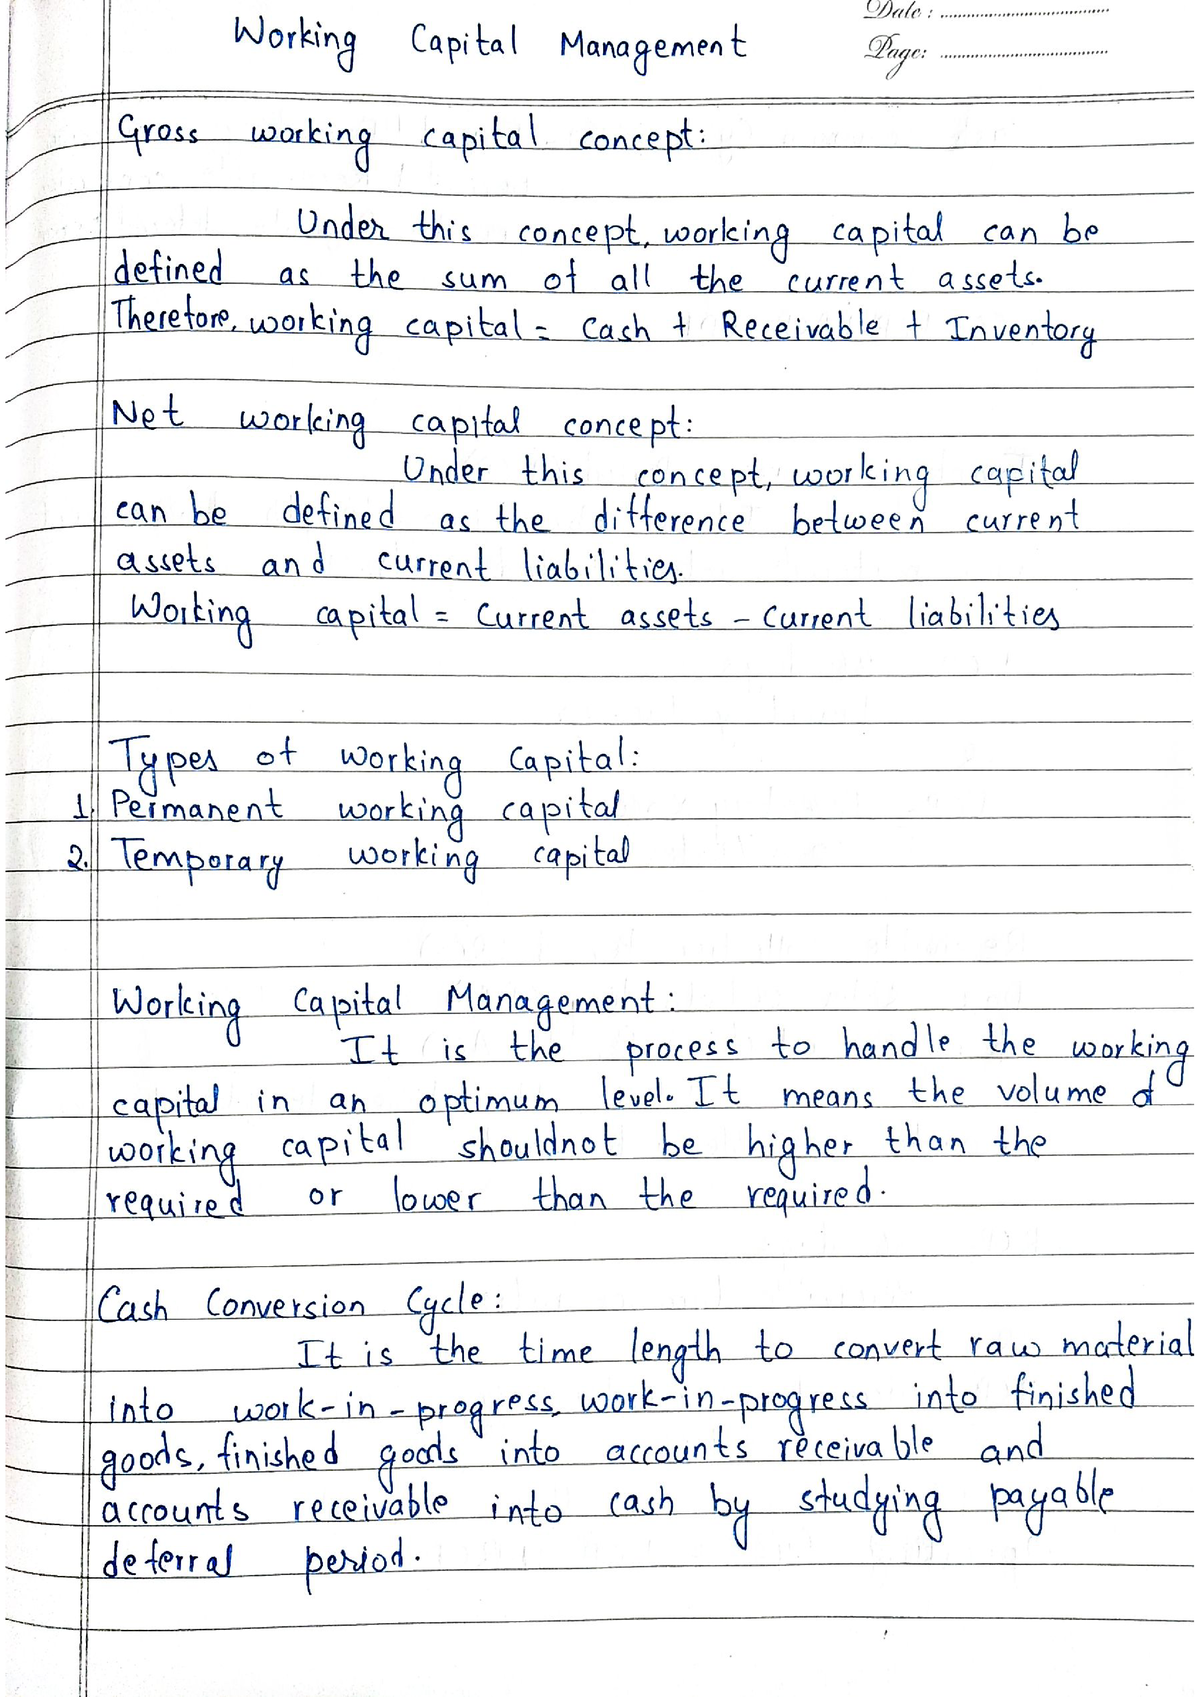 Date :
Working Capital Management
Page:
Gross working capital concept:
Under this concept, working capital can be
defined as the sum of all the current assets.
Therefore, working capital = Cash + Receivable + Inventory
Net working capital concept:
Under this concept, working capital
can be defined as the difference between current
assets and current liabilities.
Working capital = Current assets - Current liabilities
Types of Working Capital:
1. Permanent working capital
2. Temporary working capital
Working Capital Management:
It is the process to handle the working
capital in an optimum level. It means the volume of
working capital shouldnot be higher than the
required or lower than the required.
Cash Conversion Cycle:
It is the time length to convert raw material
into work-in-progress, work-in-progress into finished
goods, finished goods into accounts receivable and
accounts receivable into cash by studying payable
deferral period.